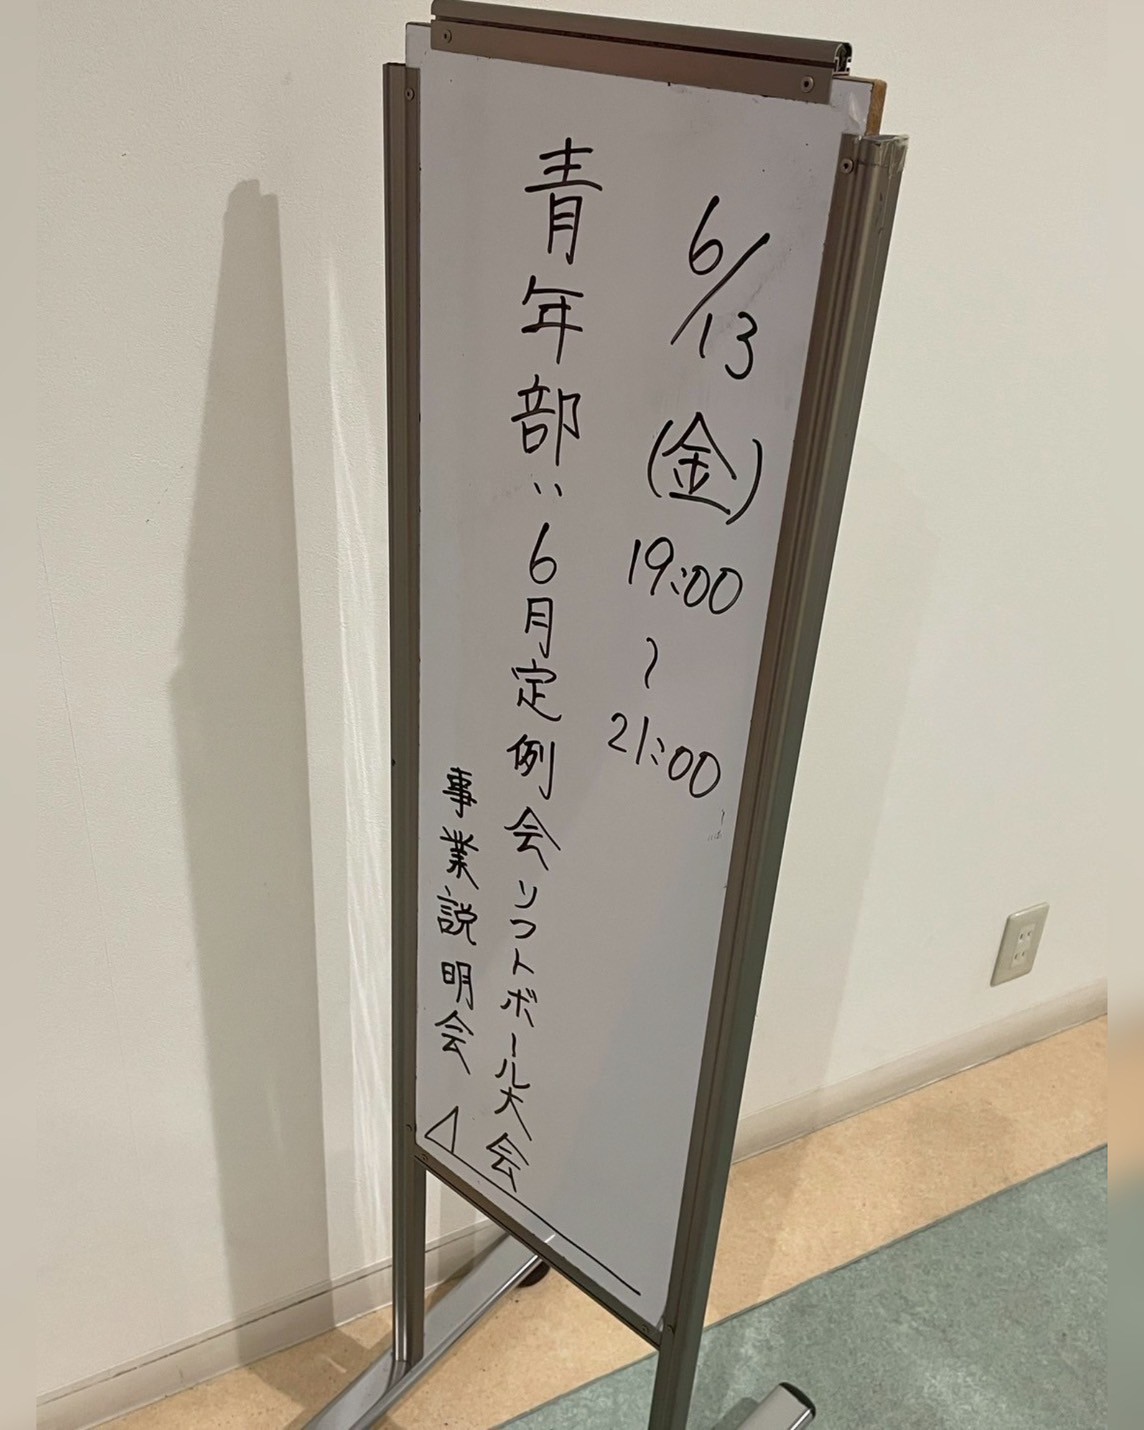 6/13(金)19:00〜21:00
青年部:6月定例会ソフトボール大会
事業説明会